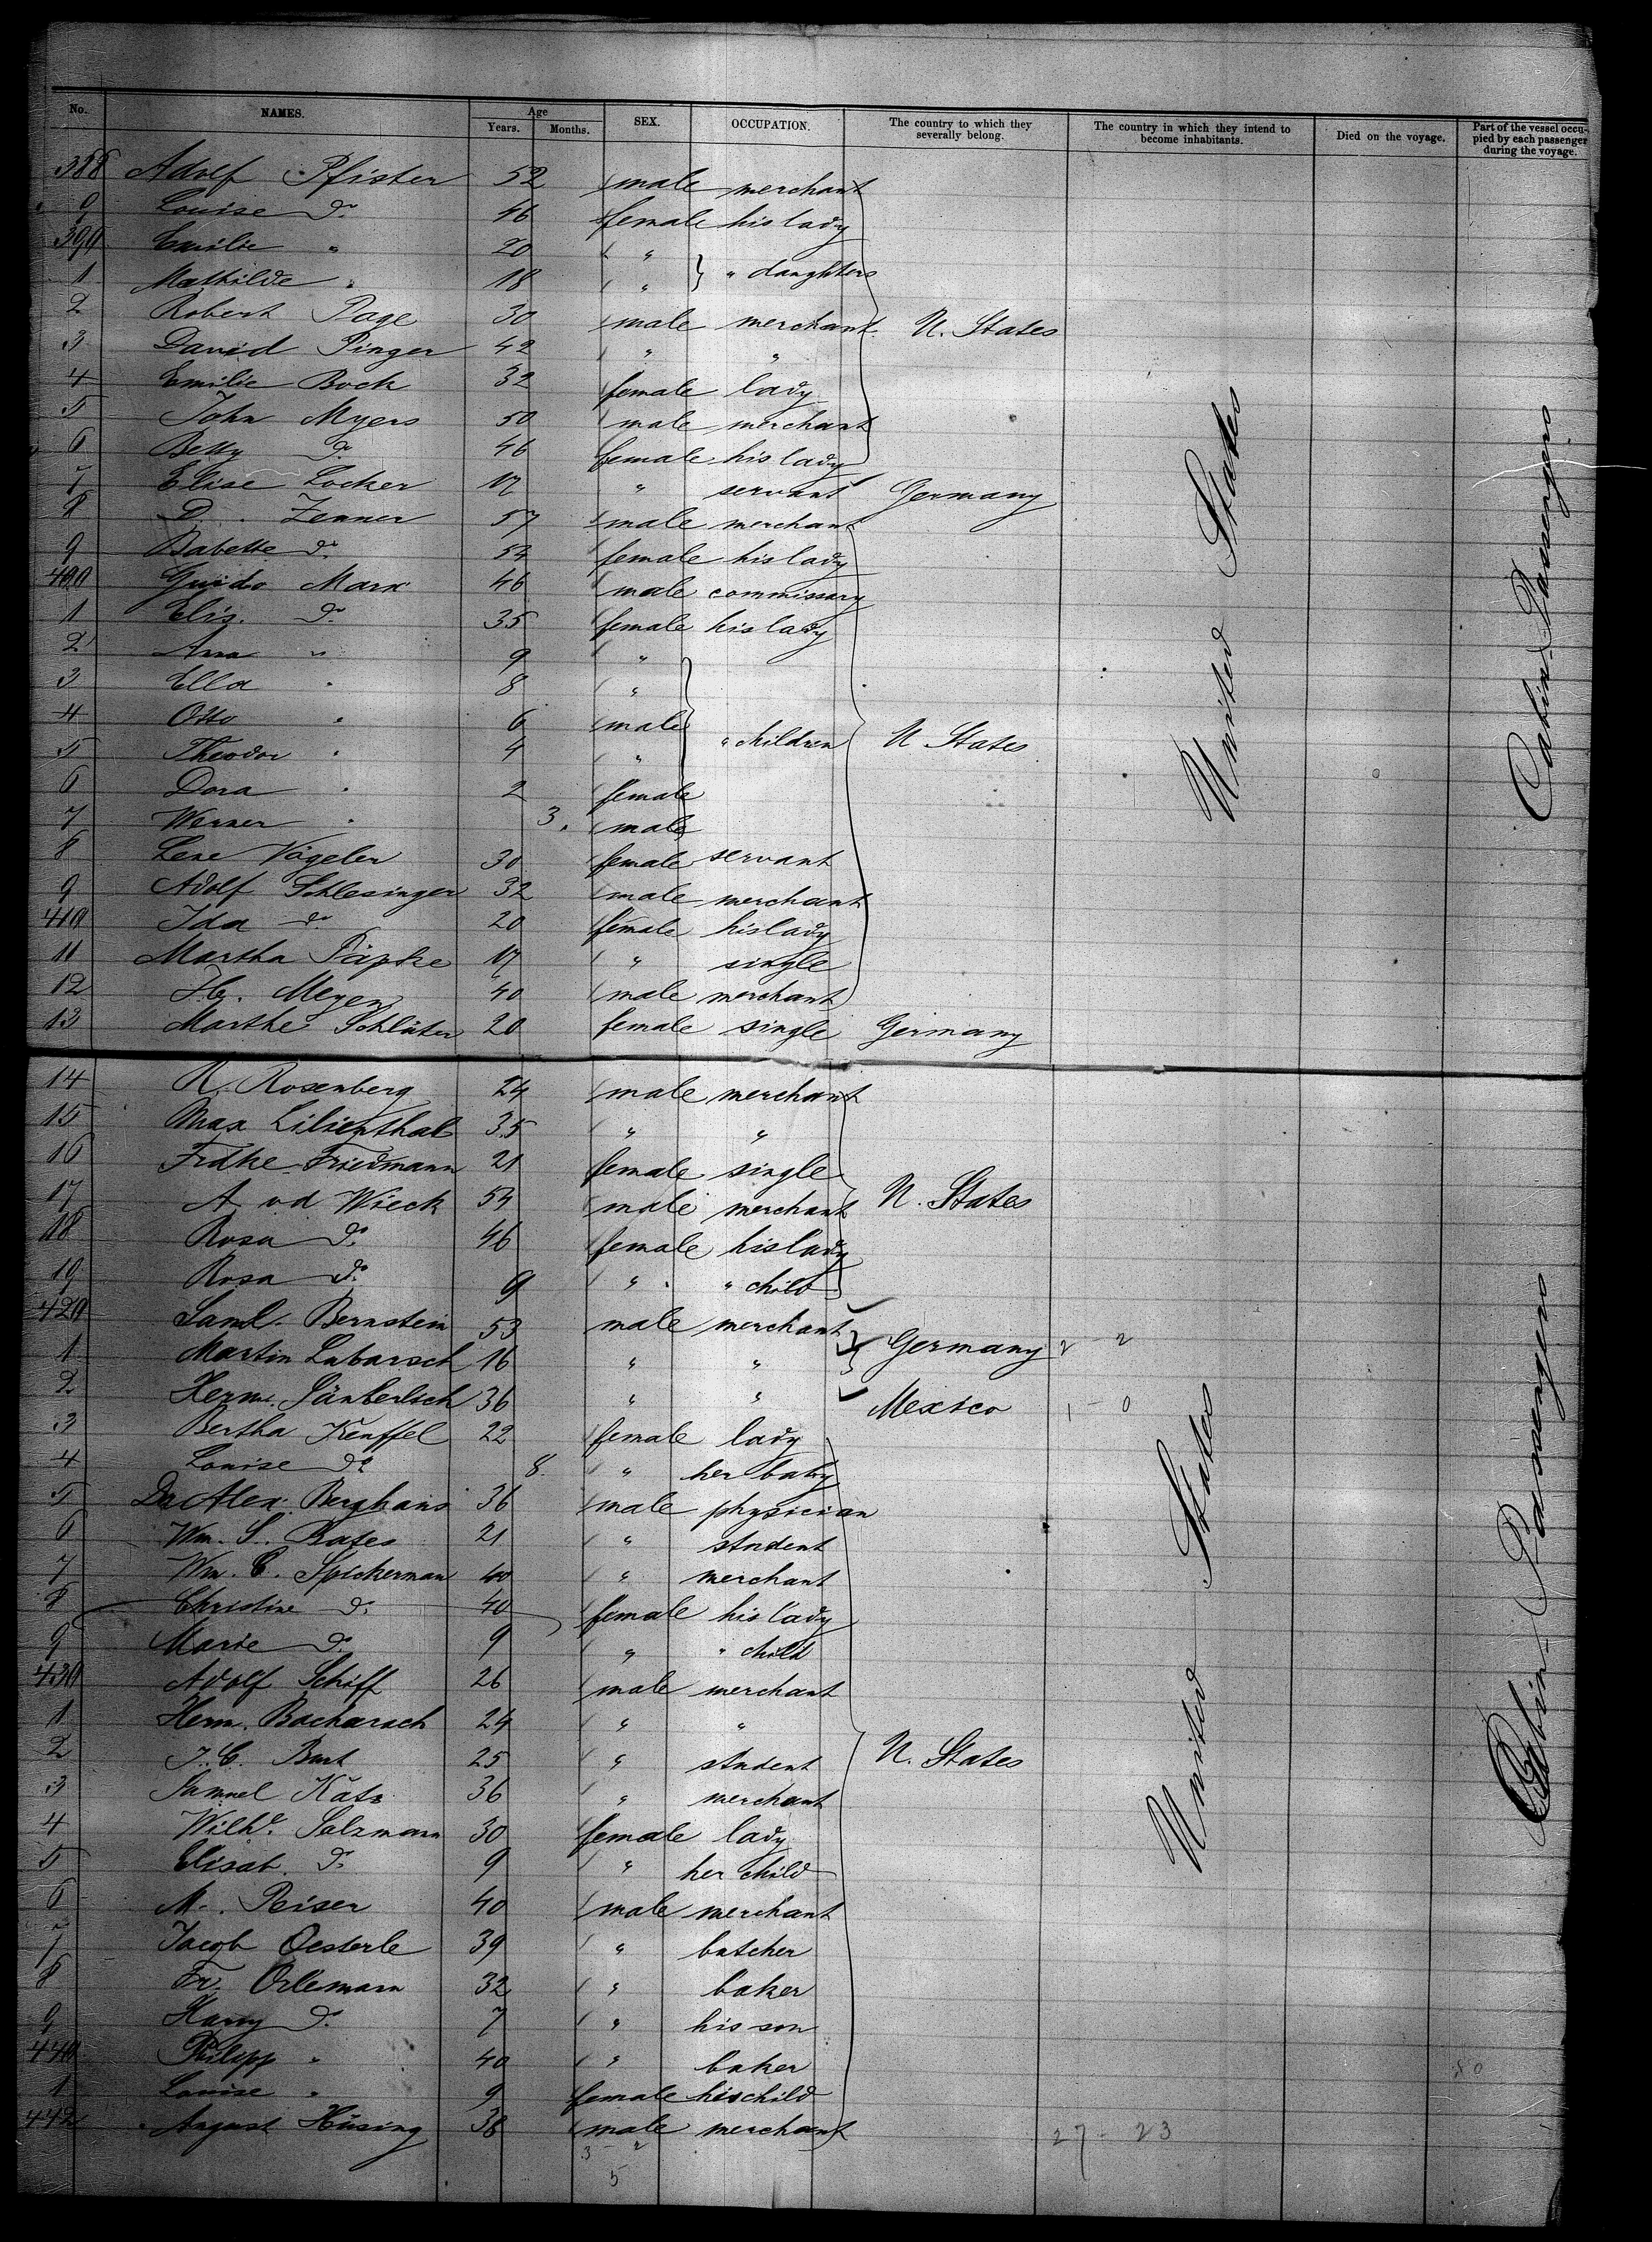 No. NAMES. Age Years. Months. SEX. OCCUPATION. The country to which they severally belong. The country in which they intend to become inhabitants. Died on the voyage. Part of the vessel occupied by each passenger during the voyage.
388 Adolf Pfister 52 male merchant
9 Louise do. 46 female his lady
390 Emilie " 20 "
1 Mathilde " 18 " " daughters
2 Robert Page 30 male merchant U. States
3 David Pinger 42 " "
4 Emilie Bock 32 female lady
5 John Myers 50 male merchant
6 Betty do 46 female his lady
7 Elise Locker 17 " servant Germany
8 D. Zenner 57 male merchant
9 Babette do. 54 female his lady
400 Guido Marx 46 male commissary
1 Elis. do. 35 female his lady
2 Anna " 9 "
3 Ella " 8 "
4 Otto " 6 male
5 Theodor " 4 " " children U States
6 Dora " 2 female
7 Werner " 3. male
8 Lene Vögeler 30 female servant
9 Adolf Schlesinger 32 male merchant
410 Ida do. 20 female his lady
11 Martha Päpke 17 " single
12 Meyer 40 male merchant
13 Marthe Schlüter 20 female single Germany
14 R. Rosenberg 24 male merchant
15 Max Lilienthal 35 " "
16 Frdke Friedmann 21 female single
17 A vd Wieck 54 male merchant U. States
18 Rosa do. 46 female his lady
19 Rosa do. 9 " " child
420 Saml. Bernstein 53 male merchant
1 Martin Lubarsch 16 " " Germany 2 - 2
2 Herm. 36 " " Mexico 1 - 0
3 Bertha Keuffel 22 female lady
4 Louise do 8. " her baby
5 Dr Alex. Berghaus 36 male physician
6 Wm. S. Bates 21 " student
7 Wm. C. Spickerman 40 " merchant
8 Christine do. 40 female his lady
9 Marie do. 9 " " child
430 Adolf Schiff 26 male merchant
1 Herm. Bacharach 24 " "
2 25 " student U. States
3 Samuel Katz 36 " merchant
4 Wilhe. Salzmann 30 female lady
5 Elisab. do. 9 " her child
6 M. Reiser 40 male merchant
7 Jacob Oesterle 39 " butcher
8 Fr. Orlemann 32 " baker
9 Harry do. 7 " his son
440 Philipp " 40 " baker
1 Louise " 9 female his child
442 August Hüsing 38 male merchant
27 - 23
5
80
United States
Cabin-Passengers
United States
Cabin-Passengers